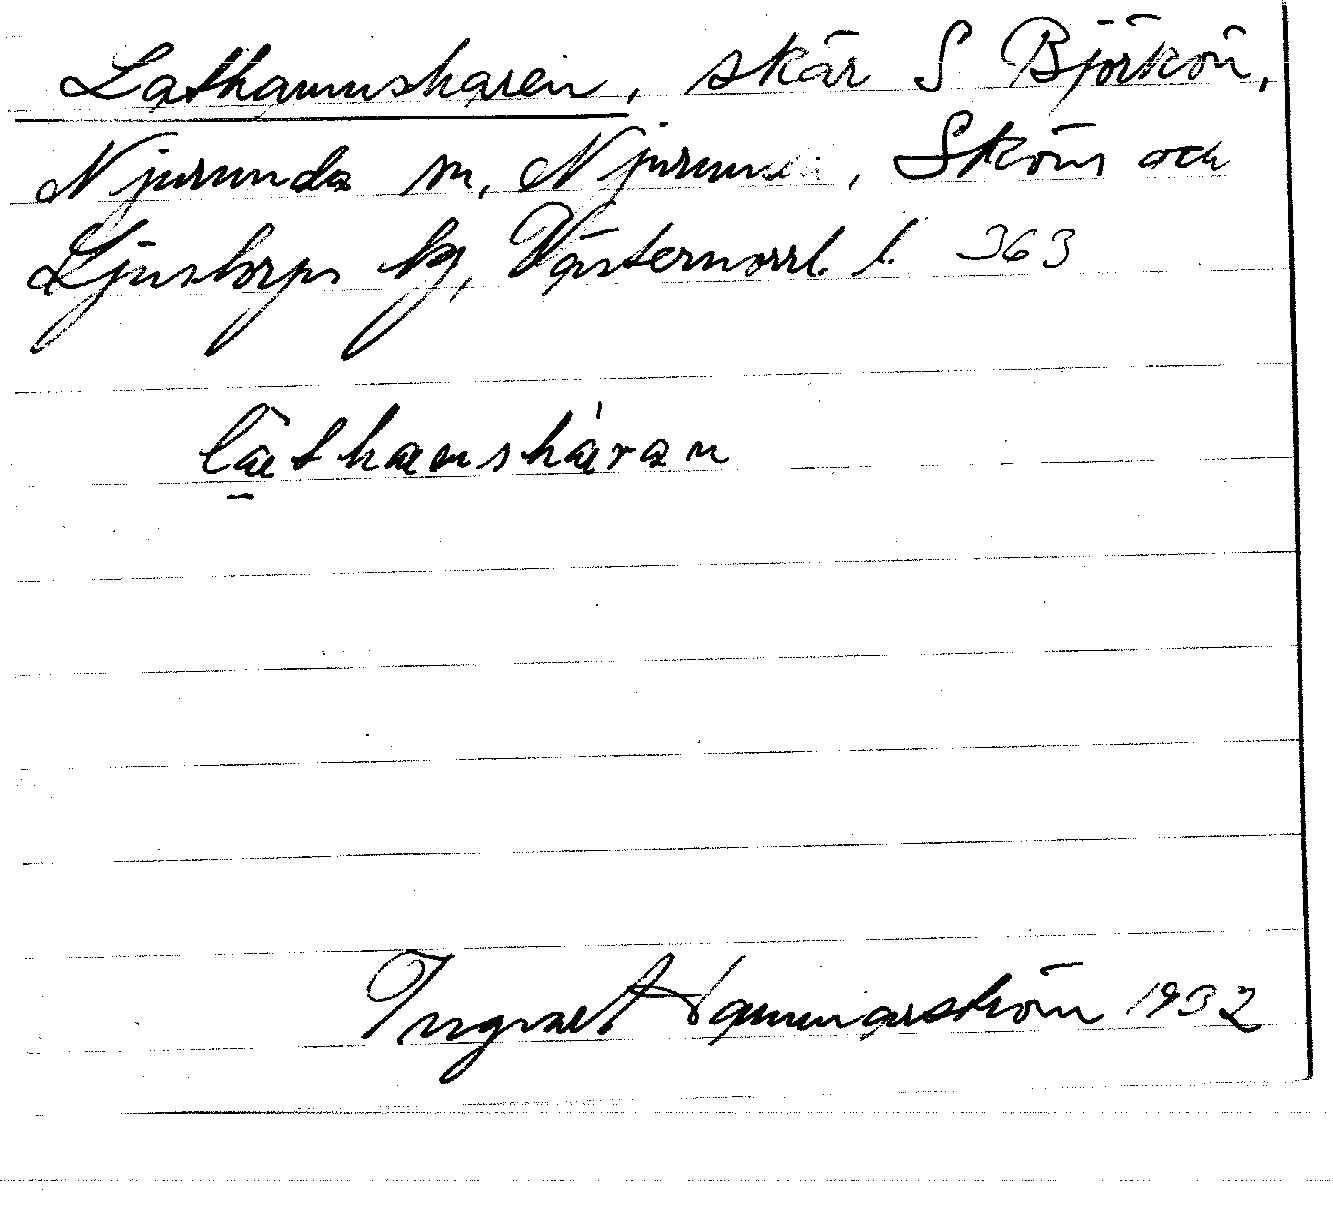 Lathamnsharen, skär S Björkön,
Njurunda sn, Njurunda, Sköns och
Ljustorps tg, Västernorrl. l. 363
lat hamnsháran
Ingvart Hammarström 1932